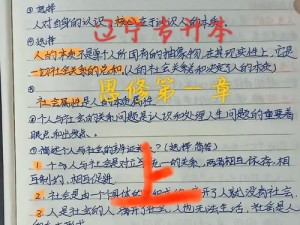 ①选择
人对自身的认识，核心在于认识人的本质。
辽宁专升本
②选择
人的本质不是单个人所固有的抽象物，在其现实性上，它是
一切社会关系的总和。(人的社会关系各和决定了人的本质)
思修第一章
③
社会属性是人的本质属性
个人与社会的关系问题是认识和处理人生问题的重要着
眼点和出发点。
①简述个人与社会的辩证关系？(选择 简答)
1. 个人与社会是对立统一的关系，两者相互依存、相
互制约、相互促进
上
2. 社会是由一个个具体的人组成的，离开了人就没有社会。
3. 人是社会的人，离开社会，人也无法生活，社会是人